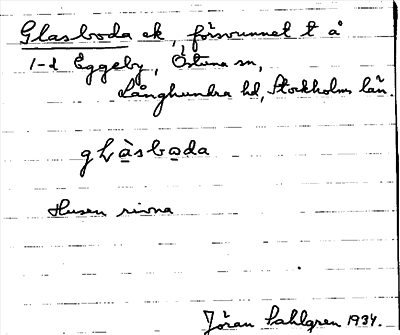 Glasboda ek, försvunnet t å
1-d Eggeby, Östuna sn,
Långhundra hd, Stockholms län.
gLàsbọda
Husen rivna
Jöran Sahlgren 1934.